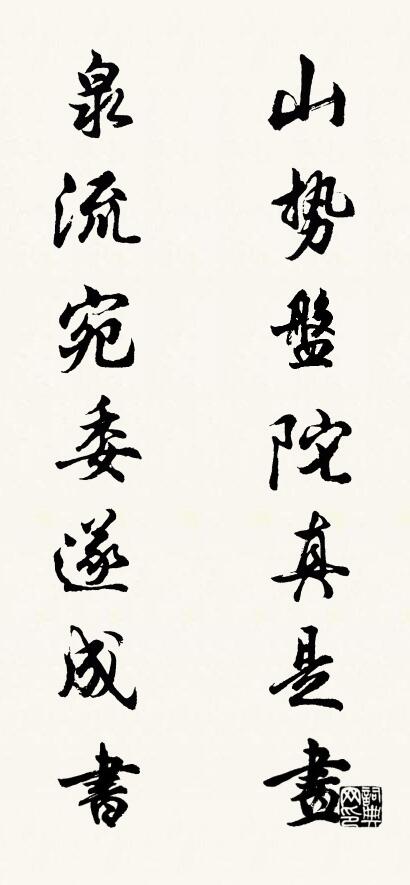 山势盤陀真是畫
泉流宛委遂成書
詞典網印